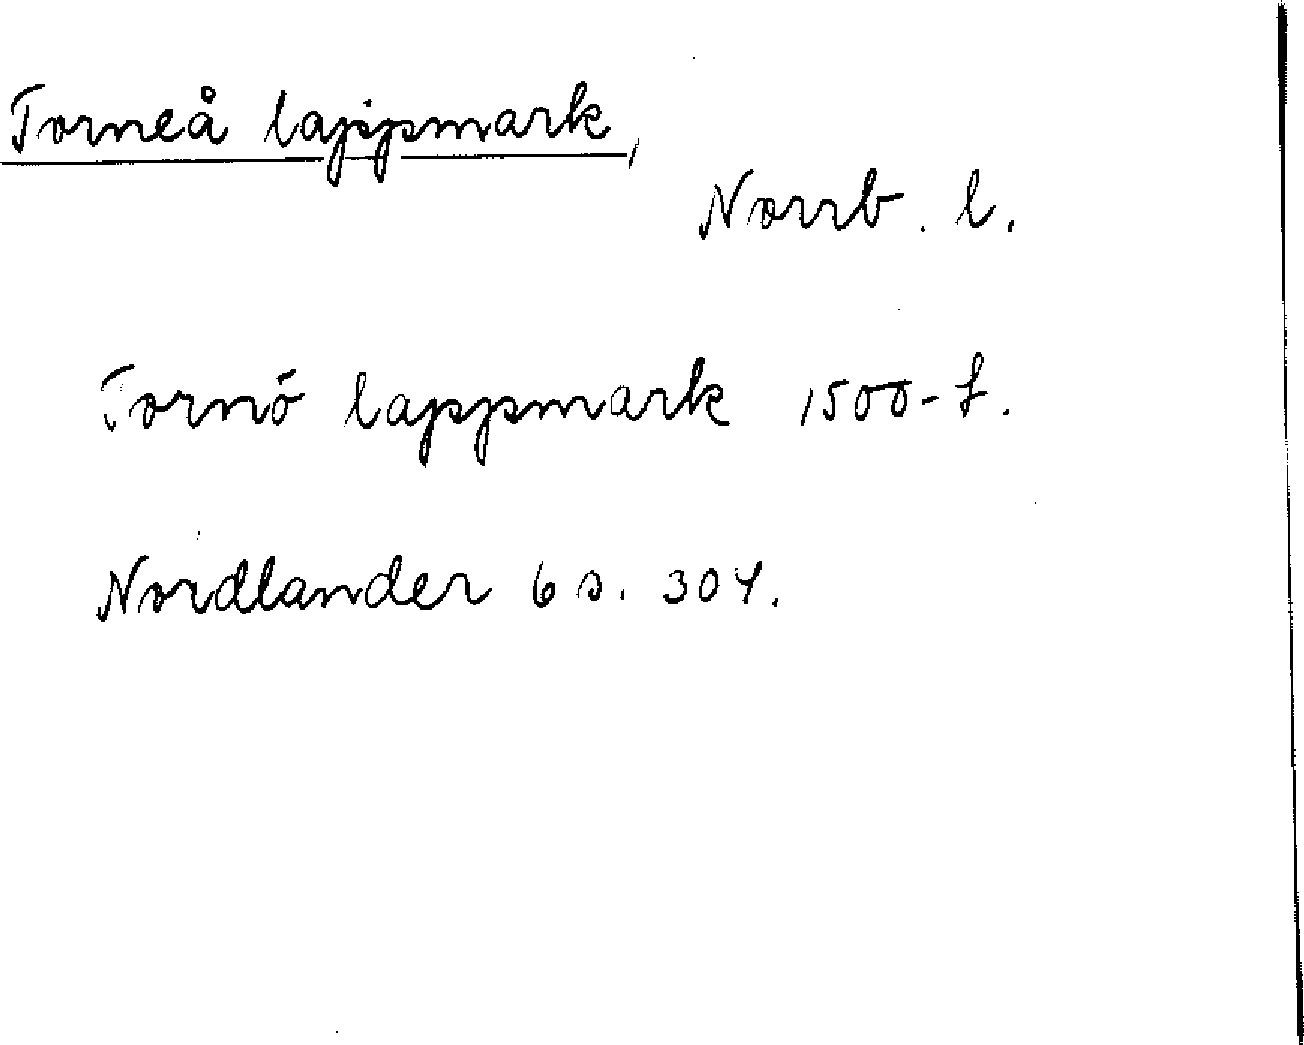 Torneå lappmark,
Norrb. l.
Tornö lappmark 1500-t.
Nordlander 6 s. 304.